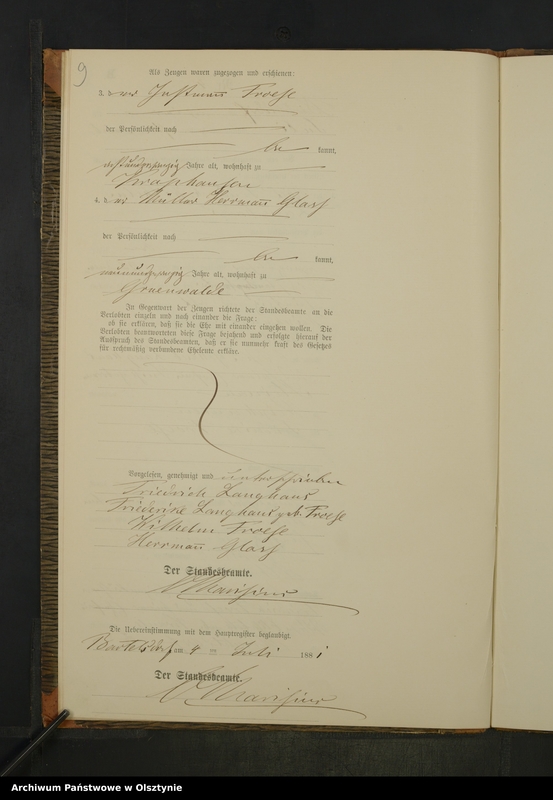 9
Als Zeugen waren zugezogen und erschienen:
3. der Troese
der Persönlichkeit nach
be kannt,
achtundzwanzig Jahre alt, wohnhaft zu
4. der Müller Herrmann Glass
der Persönlichkeit nach
be kannt,
neunundzwanzig Jahre alt, wohnhaft zu
Gruenwalde
In Gegenwart der Zeugen richtete der Standesbeamte an die
Verlobten einzeln und nach einander die Frage:
ob sie erklären, daß sie die Ehe mit einander eingehen wollen. Die
Verlobten beantworteten diese Frage bejahend und erfolgte hierauf der
Ausspruch des Standesbeamten, daß er sie nunmehr kraft des Gesetzes
für rechtmäßig verbundene Eheleute erkläre.
Vorgelesen, genehmigt und unterschrieben
Friedrich Langhans
Friederike Langhans geb. Troese
Wilhelm Troese
Herrmann Glass
Der Standesbeamte.
Die Uebereinstimmung mit dem Hauptregister beglaubigt.
Bartelsdorf am 4 ten Juli 1881
Der Standesbeamte.
Archiwum Państwowe w Olsztynie